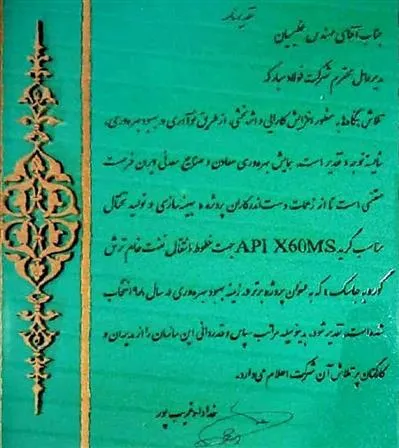 تقدیرنامه
جناب آقای مهندس عظیمیان
مدیرعامل محترم شرکت فولاد مبارکه
تلاش بنگاه‌ها به منظور افزایش کارایی و اثربخشی، از طریق نوآوری در بهبود بهره‌وری،
شایسته توجه و تقدیر است. همایش بهره‌وری معادن و صنایع معدنی ایران فرصت
مغتنمی است تا از زحمات دست‌اندرکاران پروژه « بهینه‌سازی و تولید تختال
مناسب گرید API X60MS جهت خطوط انتقال نفت خام ترش
گوره به جاسک » که به عنوان پروژه برتر در زمینه بهبود بهره‌وری در سال ۱۳۹۸ انتخاب
شده است، تقدیر شود. بدینوسیله مراتب سپاس و قدردانی این سازمان را از مدیران و
کارکنان پر تلاش آن شرکت اعلام می‌دارد.
خداداد غریب پور